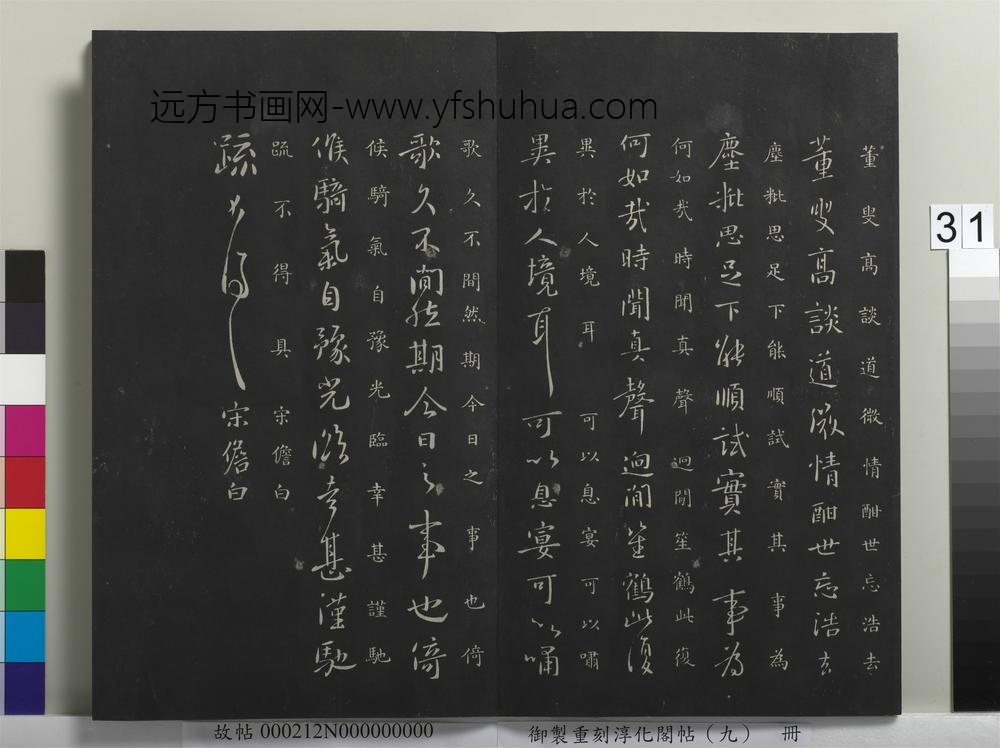 远方书画网-www.yfshuhua.com
董叟高談道微情酣世忘浩去
董叟高談道微情酣世忘浩去
塵粃思足下能順試實其事為
塵粃思足下能順試實其事為
何如哉時聞真聲迴間笙鶴此復
何如哉時聞真聲迴間笙鶴此復
異於人境耳可以息宴可以嘯
異於人境耳可以息宴可以嘯
歌久不間然期今日之事也倚
歌久不間然期今日之事也倚
候騎氣自豫光臨幸甚謹馳
候騎氣自豫光臨幸甚謹馳
疏不得具宋儋白
疏不得具宋儋白
31
故帖 000212N000000000
御製重刻淳化閣帖（九） 冊